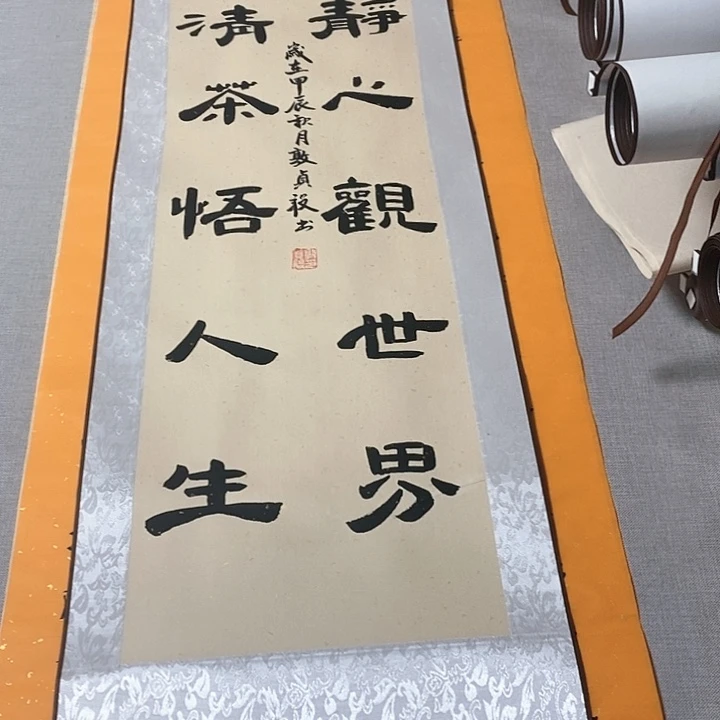 靜心觀世界
清茶悟人生
歲在甲辰秋月敦貞毅书